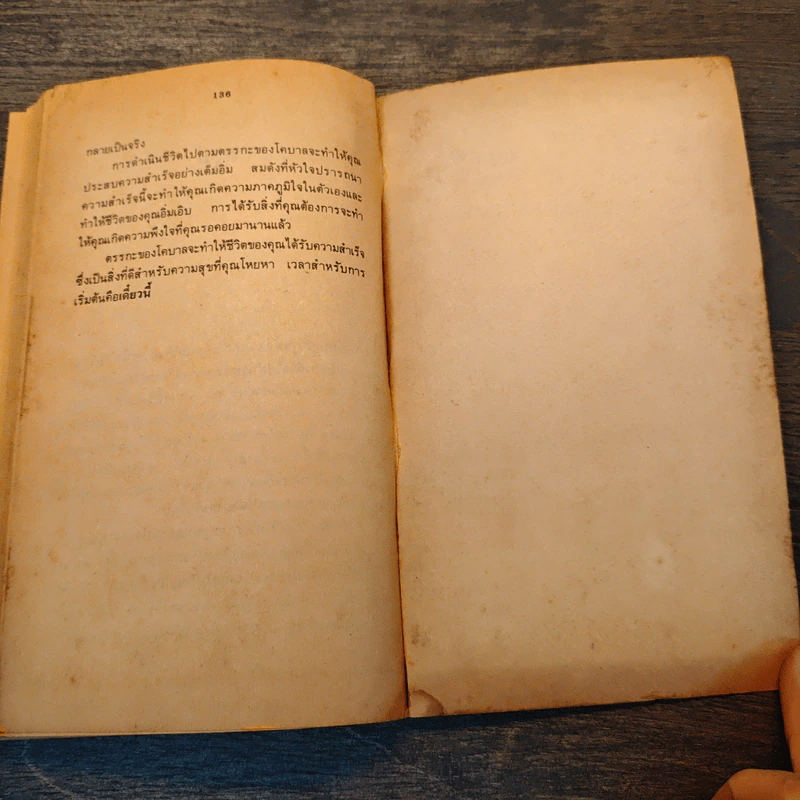 136
กลายเป็นจริง
การดำเนินชีวิตไปตามตรรกะของโคบาลจะทำให้คุณ
ประสบความสำเร็จอย่างเต็มอิ่ม สมดังที่หัวใจปรารถนา
ความสำเร็จนี้จะทำให้คุณเกิดความภาคภูมิใจในตัวเองและ
ทำให้ชีวิตของคุณอิ่มเอิบ การได้รับสิ่งที่คุณต้องการจะทำ
ให้คุณเกิดความพึงใจที่คุณรอคอยมานานแล้ว
ตรรกะของโคบาลจะทำให้ชีวิตของคุณได้รับความสำเร็จ
ซึ่งเป็นสิ่งที่ดีสำหรับความสุขที่คุณโหยหา เวลาสำหรับการ
เริ่มต้นคือเดี๋ยวนี้